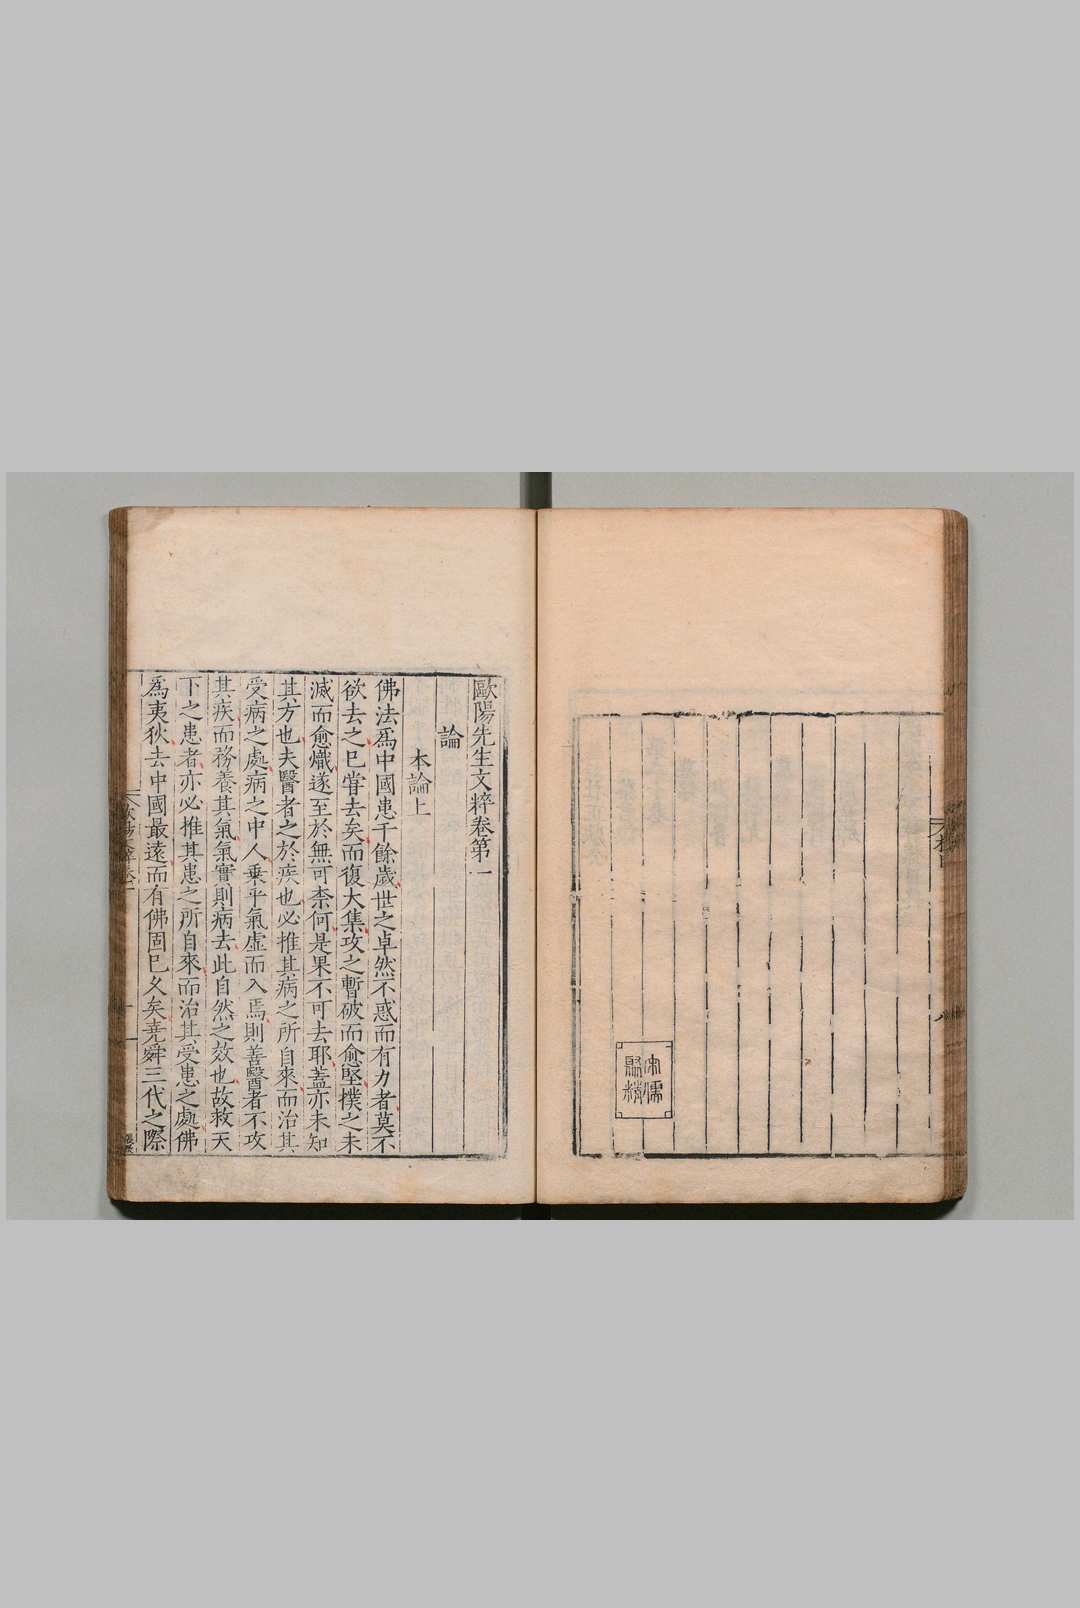 歐陽先生文粹卷第一
論
本論上
佛法爲中國患千餘歲世之卓然不惑而有力者莫不
欲去之已甞去矣而復大集攻之暫破而愈堅撲之未
滅而愈熾遂至於無可柰何是果不可去耶蓋亦未知
其方也夫醫者之於疾也必推其病之所自來而治其
受病之處病之中人乗乎氣虛而入焉則善醫者不攻
其疾而務養其氣氣實則病去此自然之效也故救天
下之患者亦必推其患之所自來而治其受患之處佛
爲夷狄去中國最遠而有佛固已久矣堯舜三代之際